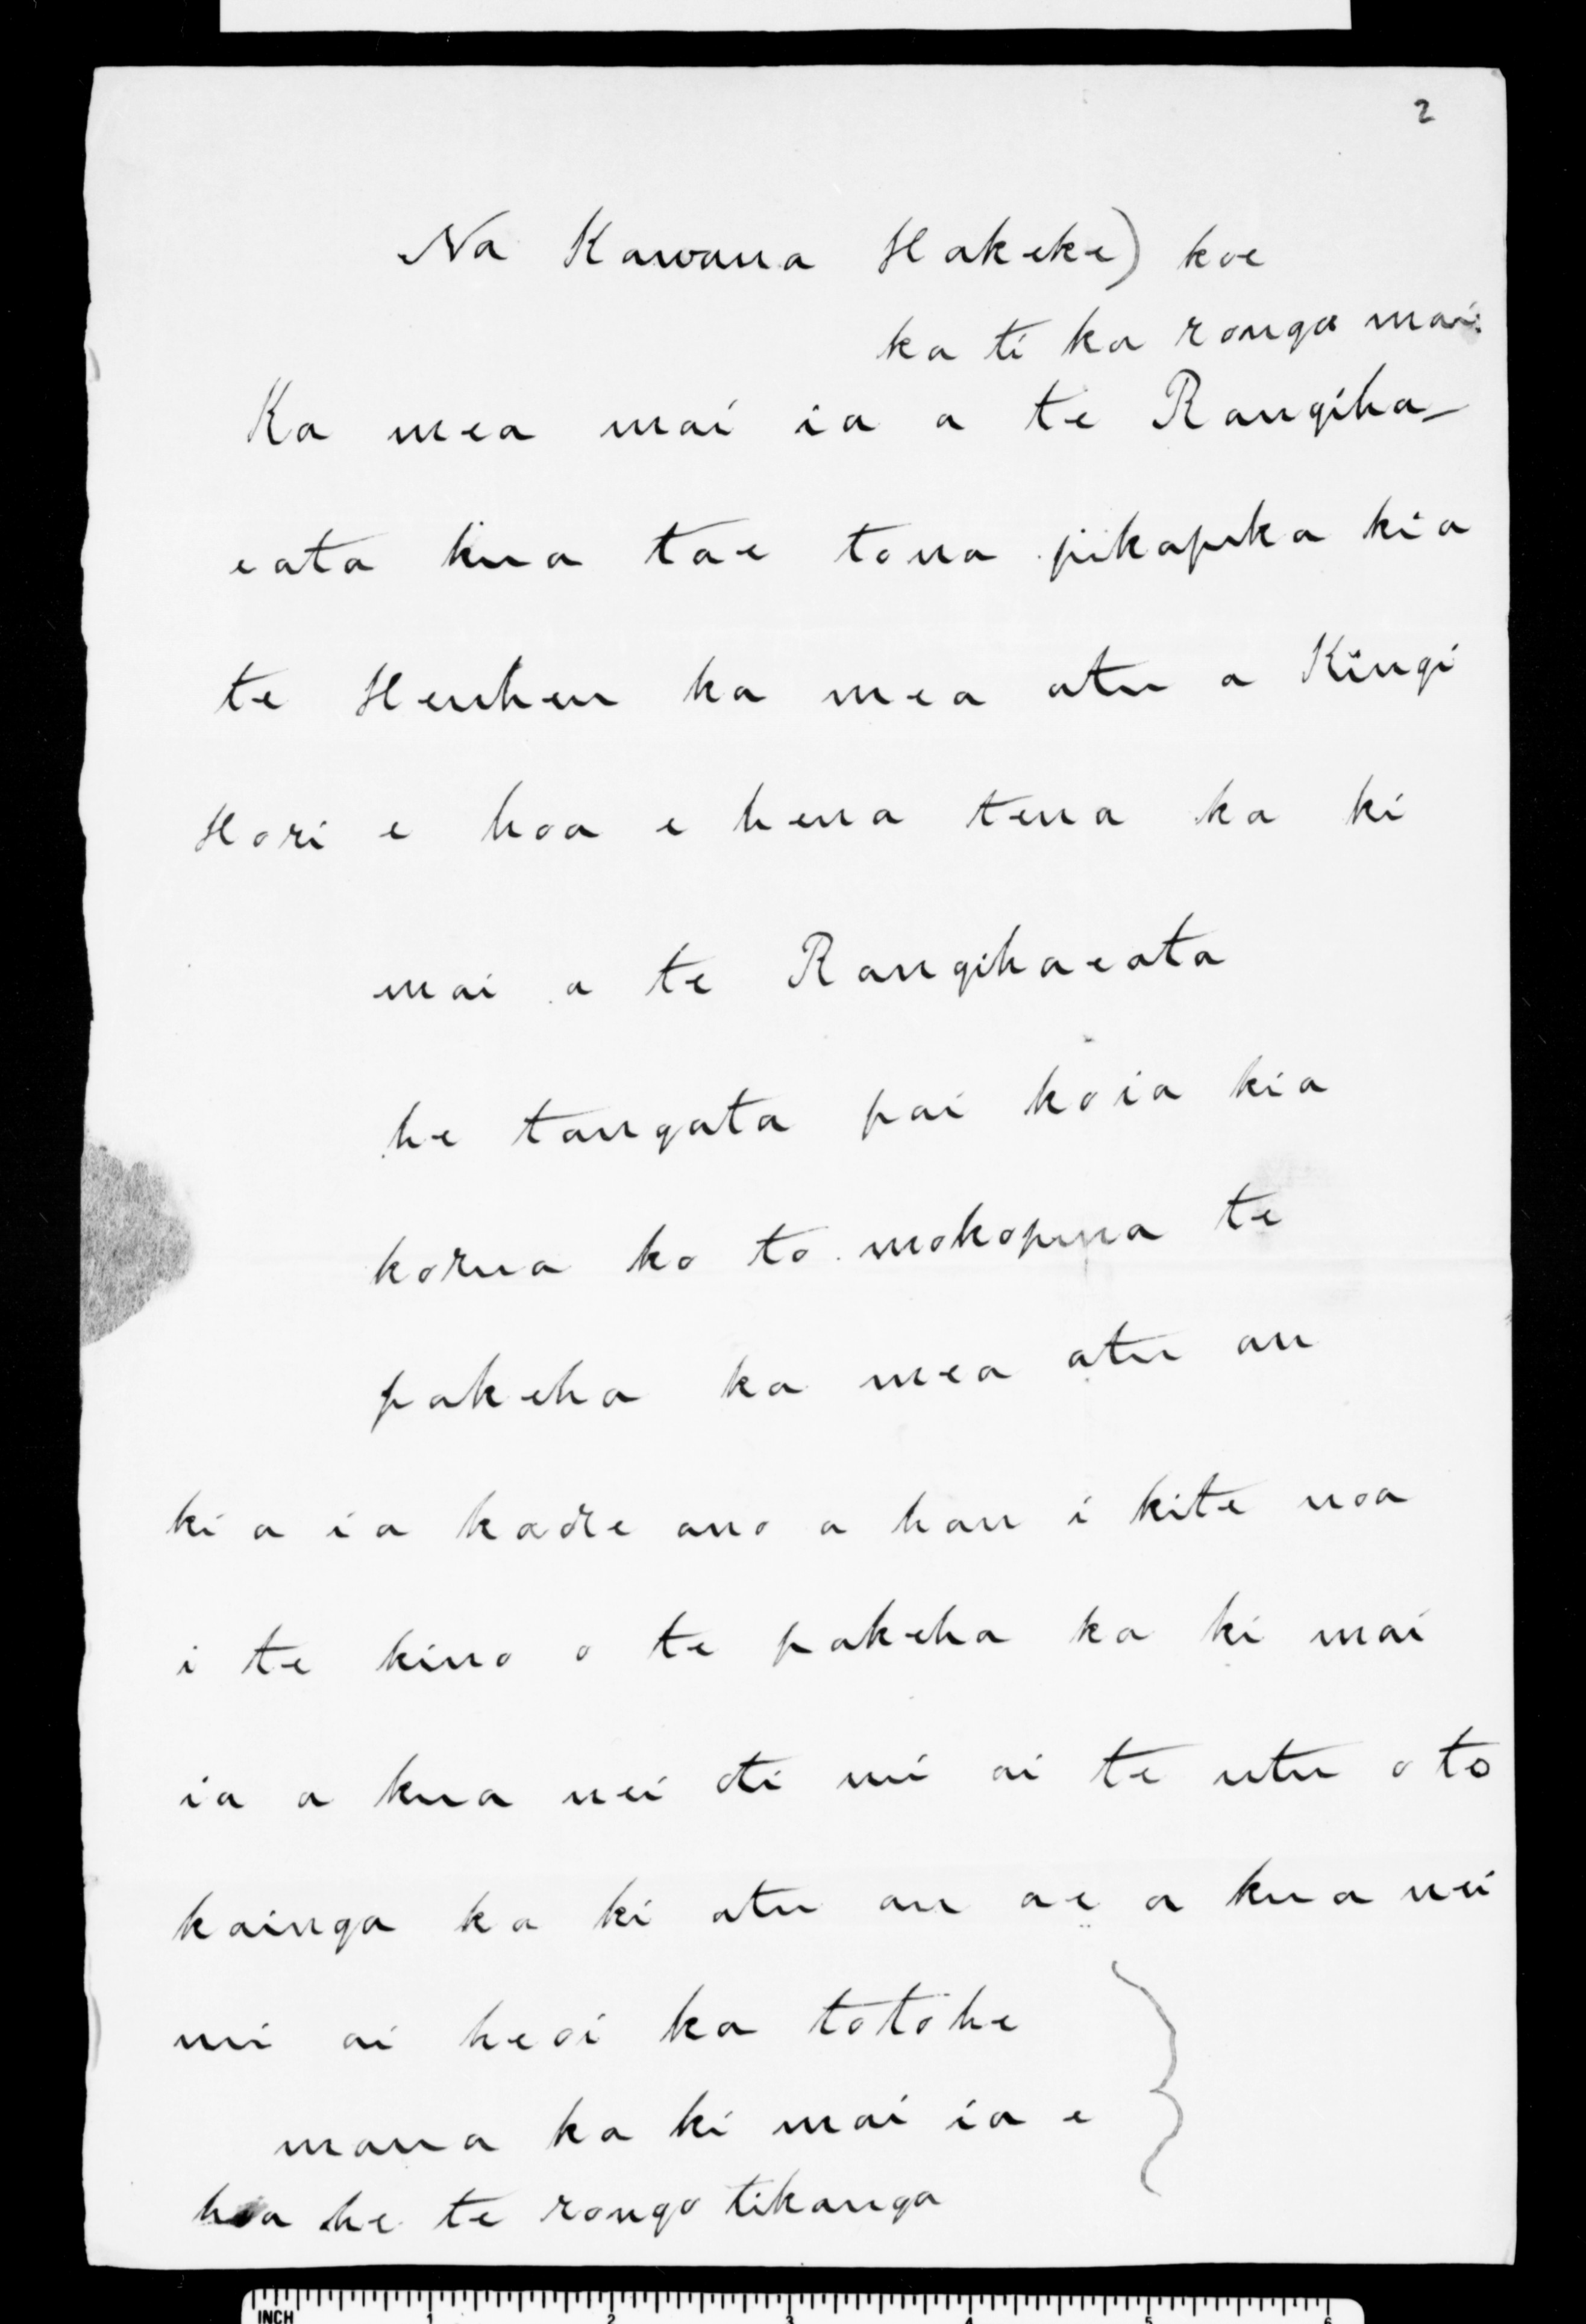 2
Na Kawana Hakeke) koe
ka ti ka ronga mai:
Ka mea mai ia a te Rangiha-
eata kua tae tona pikapika kia
te Heuheu ka mea atu a Kingi
Hori e hoa e hena tena ka ki
mai a te Rangihaeata
he tangata pai koia kia
korua ko to mokopuna te
pakeha ka mea atu au
ki a ia kaore ano a hau i kite noa
i te kino o te pakeha ka ki mai
ia a kua nei oti nui ai te utu o to
kainga ka ki atu au ae a kua nei
nui ai heoi ka totohe
maua ka ki mai ia e
hoa he te rongo tikanga
INCH 1 2 3 4 5 6